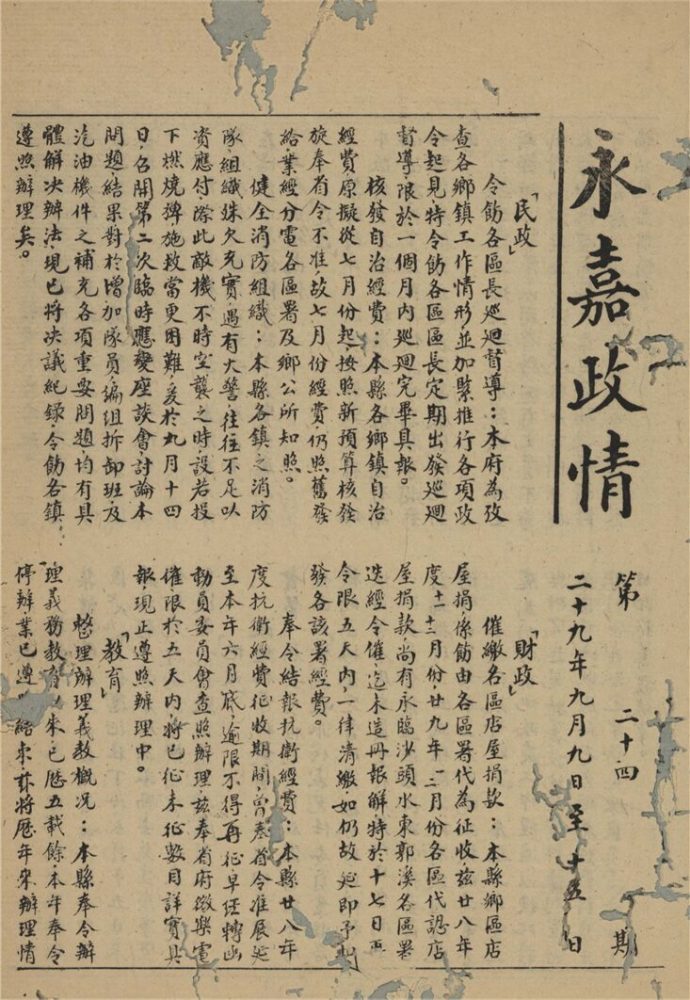 永嘉政情
第二十四期
二十九年九月九日至十五日
「民政」
令飭各區長巡迴督導：本府為攷
查各鄉鎮工作情形並加緊推行各項政
令起見特令飭各區區長定期出發巡迴
督導限於一個月內巡迴完畢具報。
核發自治經費：本縣各鄉鎮自治
經費原擬從七月份起按照新預算核發
旋奉省令不准，故七月份經費，仍照舊發
給業經分電各區署及鄉公所知照。
健全消防組織：本縣各鎮之消防
隊組織殊欠充實，遇有火警，往往不足以
資應付際此敵機不時空襲之時，設若投
下燃燒彈施救當更困難，爰於九月十四
日，召開第二次臨時應變座談會，討論本
問題結果對於增加隊員，編組拆卸班及
汽油機件之補充各項重要問題，均有具
體解決辦法，現已將決議紀錄，令飭各鎮
遵照辦理矣。
「財政」
催繳各區店屋捐款：本縣鄉區店
屋捐，係飭由各區署代為征收茲廿八年
度十一十二月份，廿九年一二月份各區代認店
屋捐款尚有永臨沙頭水東郭溪各區署
迭經令催，迄未造冊報解，特於十七日再
令限五天內，一律清繳，如仍故延即予
發各該署經費。
奉令結報抗衛經費：本縣廿八年
度抗衛經費征收期間，曾奉省令准展延
至本年六月底，逾限不得再征，早經轉函
動員委員會查照辦理，茲奉省府微樂電
催限於五天內，將已征未征數目詳實具
報，現正遵照辦理中。
「教育」
整理辦理義教概況：本縣奉令辦
理義務教育以來，已歷五載餘，本年奉令
停辦，業已遵結束，茲將歷年來辦理情